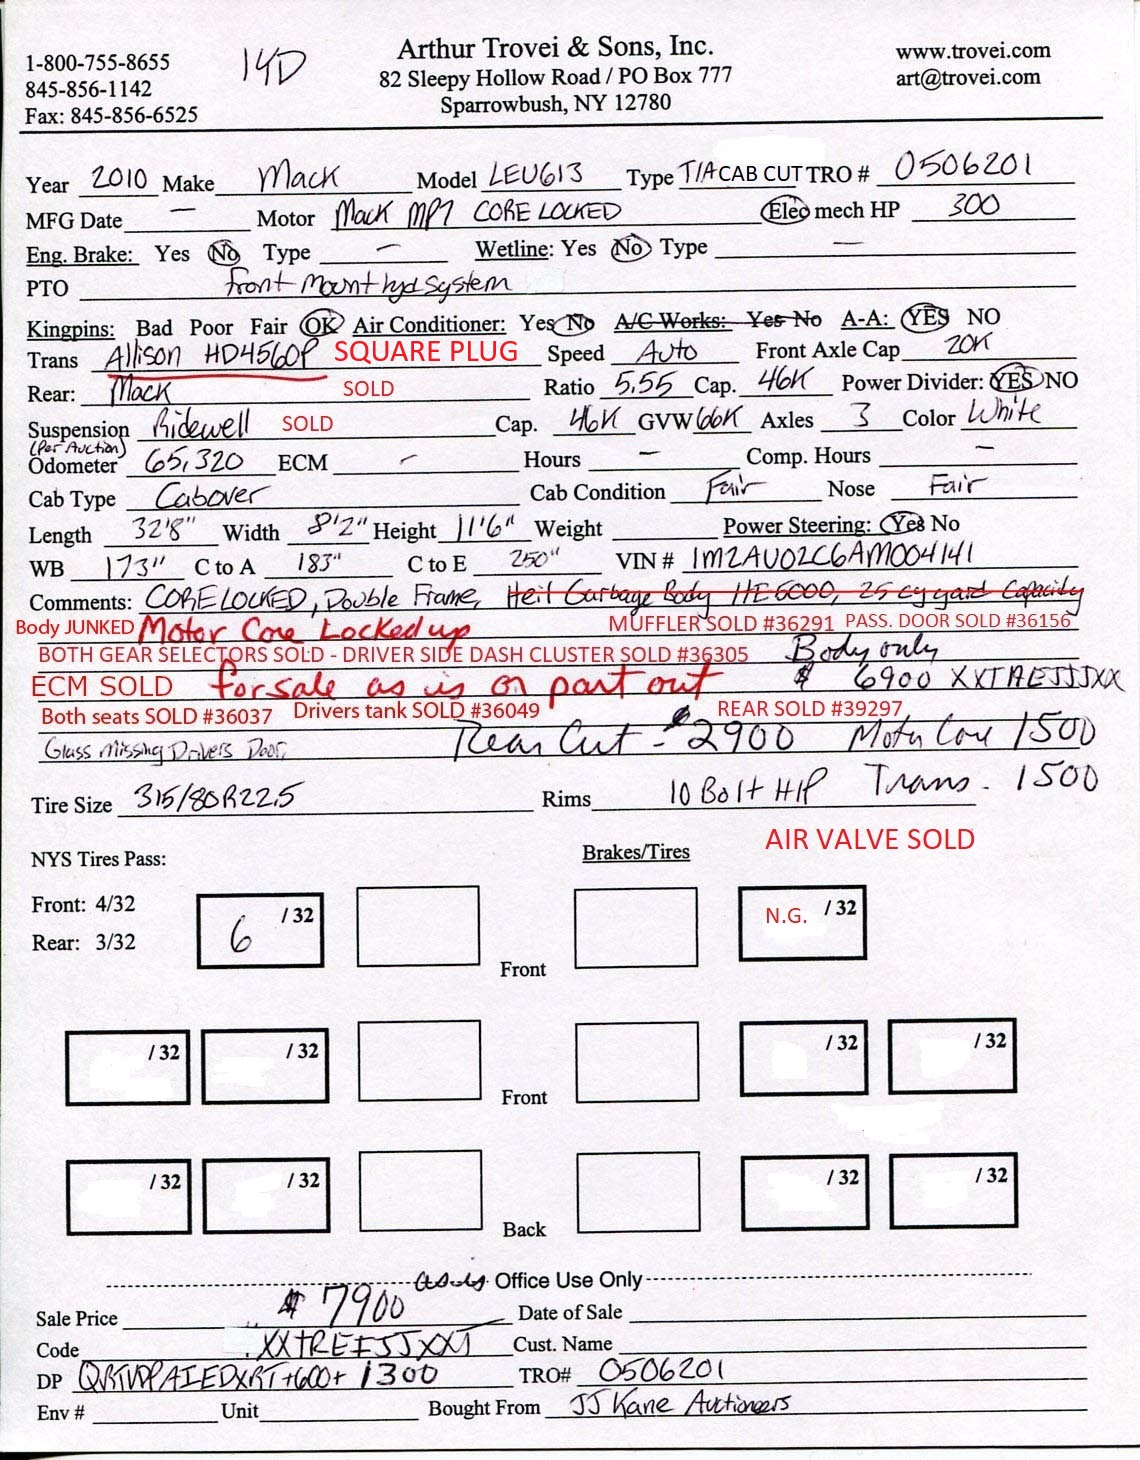 1-800-755-8655
845-856-1142
Fax: 845-856-6525
14D
Arthur Trovei & Sons, Inc.
82 Sleepy Hollow Road / PO Box 777
Sparrowbush, NY 12780
www.trovei.com
art@trovei.com
Year 2010 Make Mack Model LEU613 Type T/A CAB CUT TRO # 0506201
MFG Date — Motor Mack MP7 CORE LOCKED Elec mech HP 300
Eng. Brake: Yes No Type — Wetline: Yes No Type —
PTO Front Mount hyd system
Kingpins: Bad Poor Fair OK Air Conditioner: Yes No A/C Works: Yes No A-A: YES NO
Trans Allison HD4560P SQUARE PLUG Speed Auto Front Axle Cap 20K
Rear: Mack SOLD Ratio 5.55 Cap. 46K Power Divider: YES NO
Suspension Ridewell SOLD Cap. 46K GVW 66K Axles 3 Color White
(Per Auction)
Odometer 65,320 ECM — Hours — Comp. Hours —
Cab Type Cabover Cab Condition Fair Nose Fair
Length 32'8" Width 8'2" Height 11'6" Weight Power Steering: Yes No
WB 173" C to A 183" C to E 250" VIN # 1M2AU02C6AM004141
Comments: CORE LOCKED, Double Frame, Heil Garbage Body HE6000, 25 cy yard Capacity
Body JUNKED Motor Core Locked up MUFFLER SOLD #36291 PASS. DOOR SOLD #36156
BOTH GEAR SELECTORS SOLD - DRIVER SIDE DASH CLUSTER SOLD #36305 Body only
ECM SOLD for sale as is or part out $ 6900 XXTAEJJJXX
Both seats SOLD #36037 Drivers tank SOLD #36049 REAR SOLD #39297
Glass Missing Drivers Door, Rear Cut - $2900 Motor Core 1500
Tire Size 315/80R22.5 Rims 10 Bolt H/P Trans. 1500
AIR VALVE SOLD
NYS Tires Pass: Brakes/Tires
Front: 4/32
Rear: 3/32
6 /32 N.G. /32
Front
/32 /32 /32 /32
Front
/32 /32 /32 /32
Back
as is Office Use Only
Sale Price $ 7900 Date of Sale
Code XXTREIJJXXT Cust. Name
DP +600+ 1300 TRO# 0506201
Env # Unit Bought From JJ Kane Auctioneers